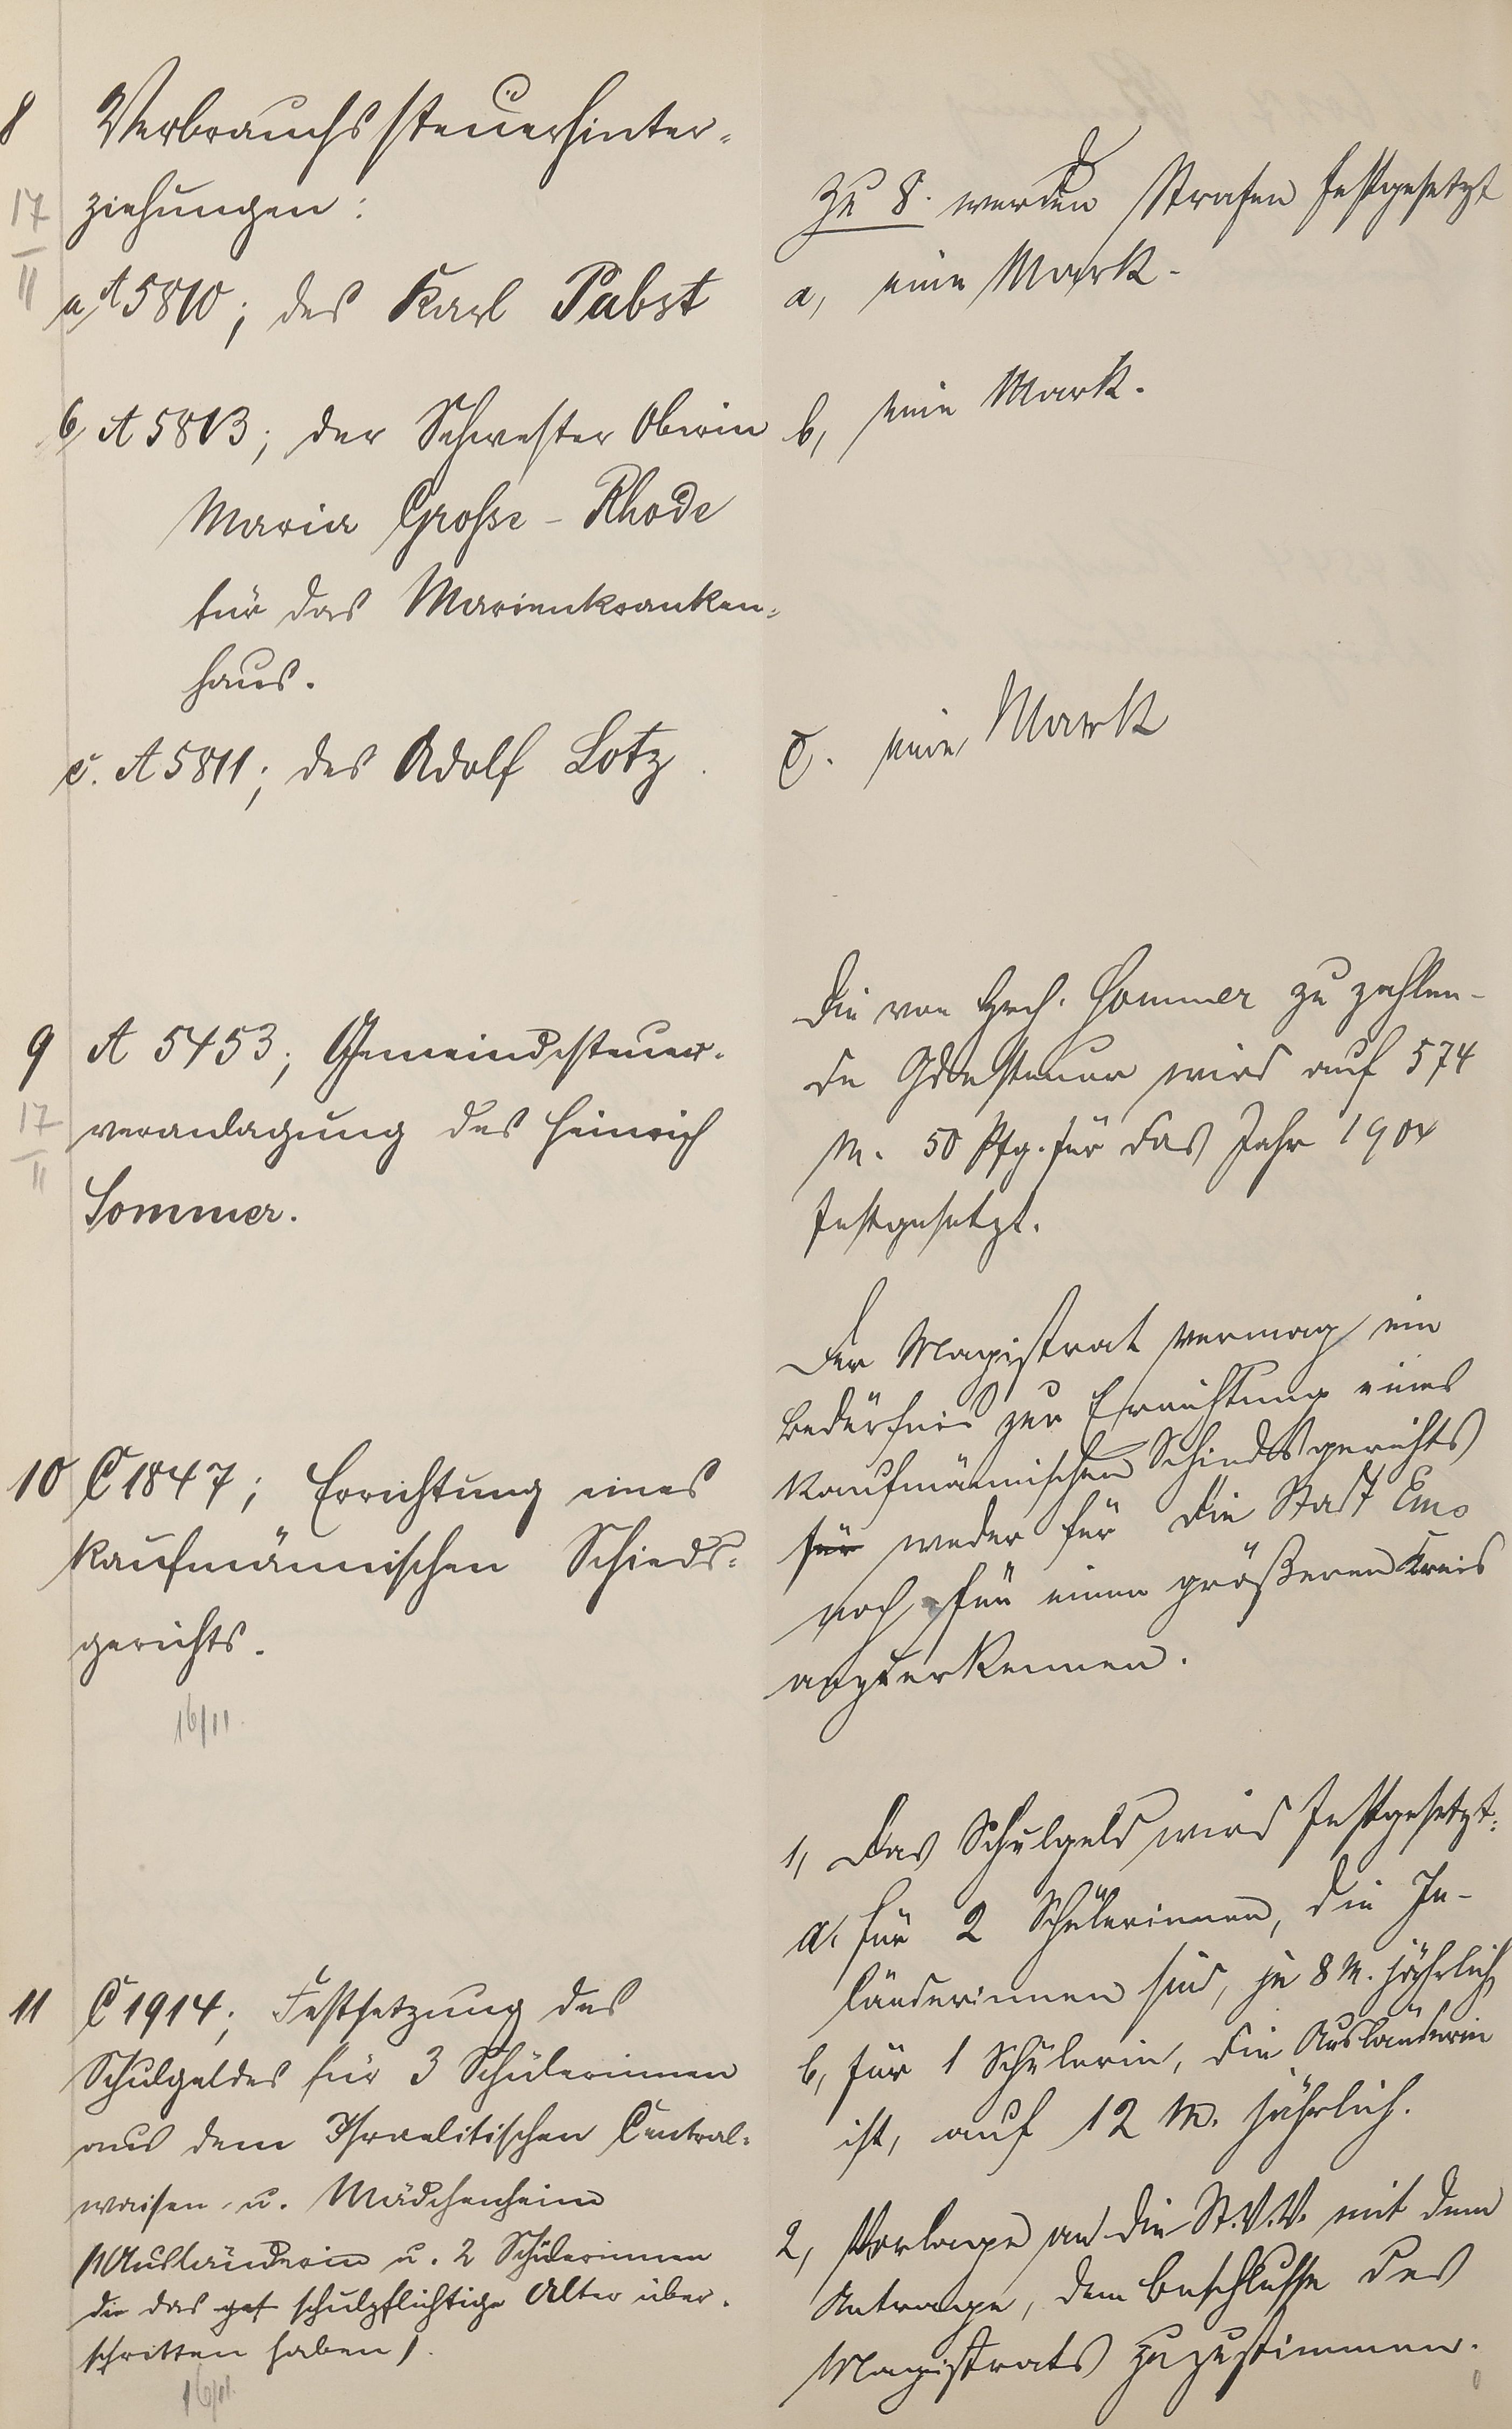 8 Verbrauchssteuerhinter-
17/11 ziehungen:
a, A 5810; des Karl Pabst
b, A 5813; der Schwester Oberin
Maria Grosse-Rhode
für das Marienkranken-
haus.
c. A 5811; des Adolf Lotz.
Zu 8. werden Strafen festgesetzt
a, eine Mark.
b, eine Mark.
c. eine Mark
9 A 5453; Gemeindesteuer-
17/11 veranlagung des Heinrich
Sommer.
Die von Hrch. Sommer zu zahlen-
de Gdesteuer wird auf 574
M. 50 Pfg. für das Jahr 1904
festgesetzt.
10 C 1847; Errichtung eines
kaufmännischen Schieds-
gerichts.
16/11.
Der Magistrat vermag ein
Bedürfnis zur Errichtung eines
kaufmännischen Schiedsgerichts
für weder für die Stadt Ems
noch für einen größeren Kreis
anzuerkennen.
11 C 1914; Festsetzung des
Schulgeldes für 3 Schülerinnen
aus dem Israelitischen Central-
waisen- u. Mädchenheim
(1 Ausländerin u. 2 Schülerinnen
die das ges schulpflichtige Alter über-
schritten haben).
16/11.
1, Das Schulgeld wird festgesetzt:
a, für 2 Schülerinnen, die In-
länderinnen sind, je 8 M. jährlich
b, für 1 Schülerin, die Ausländerin
ist, auf 12 M. jährlich.
2, Vorlage an die St.V.V. mit dem
Antrage, dem Beschlusse des
Magistrats zuzustimmen.